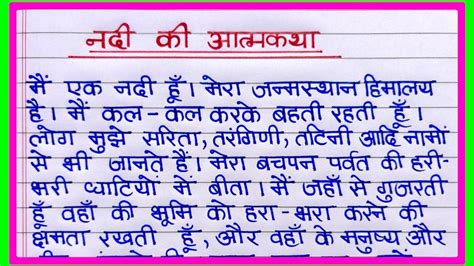 नदी की आत्मकथा
मैं एक नदी हूँ। मेरा जन्मस्थान हिमालय
है। मैं कल-कल करके बहती रहती हूँ।
लोग मुझे सरिता, तरंगिणी, तटिनी आदि नामों
से भी जानते हैं। मेरा बचपन पर्वत की हरी-
भरी घाटियों में बीता। मैं जहाँ से गुजरती
हूँ वहाँ की भूमि को हरा-भरा करने की
क्षमता रखती हूँ, और वहाँ के मनुष्य और